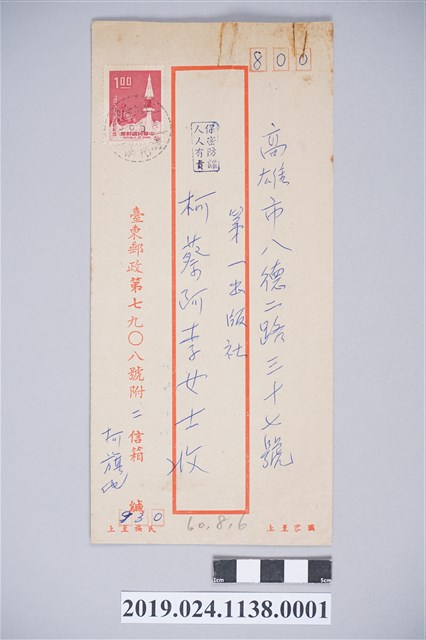 800
1.00
高雄市八德二路三十七號
第一出版社
保密防諜
人人有責
柯蔡阿李女士收
臺東郵政第七九〇八號附二信箱 緘
柯旗
930
60.8.6
1cm
5cm
2019.024.1138.0001